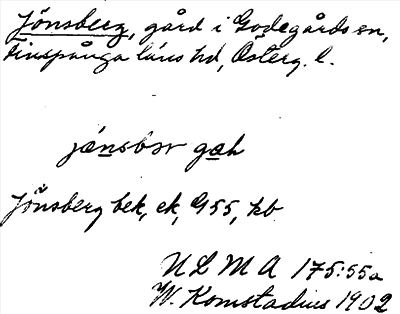 Jönsberg, gård i Godegårds sn,
Finspånga läns hd, Österg. l.
jánsbər gah
Jönsberg bek, ek, G55, kb
ULMA 175:55a
W. Komstadius 1902